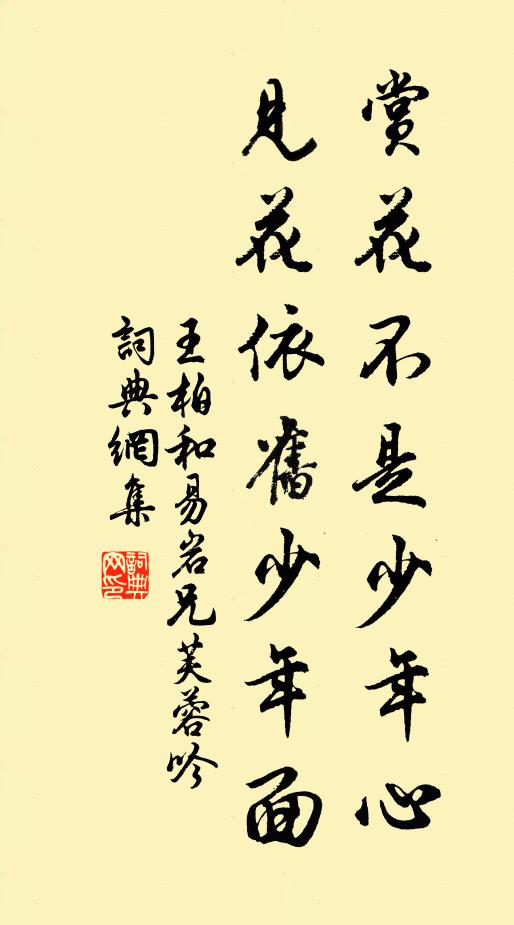 賞花不是少年心
見花依舊少年面
王柏和易岩兄芙蓉吟
詞典網集
詞典網印